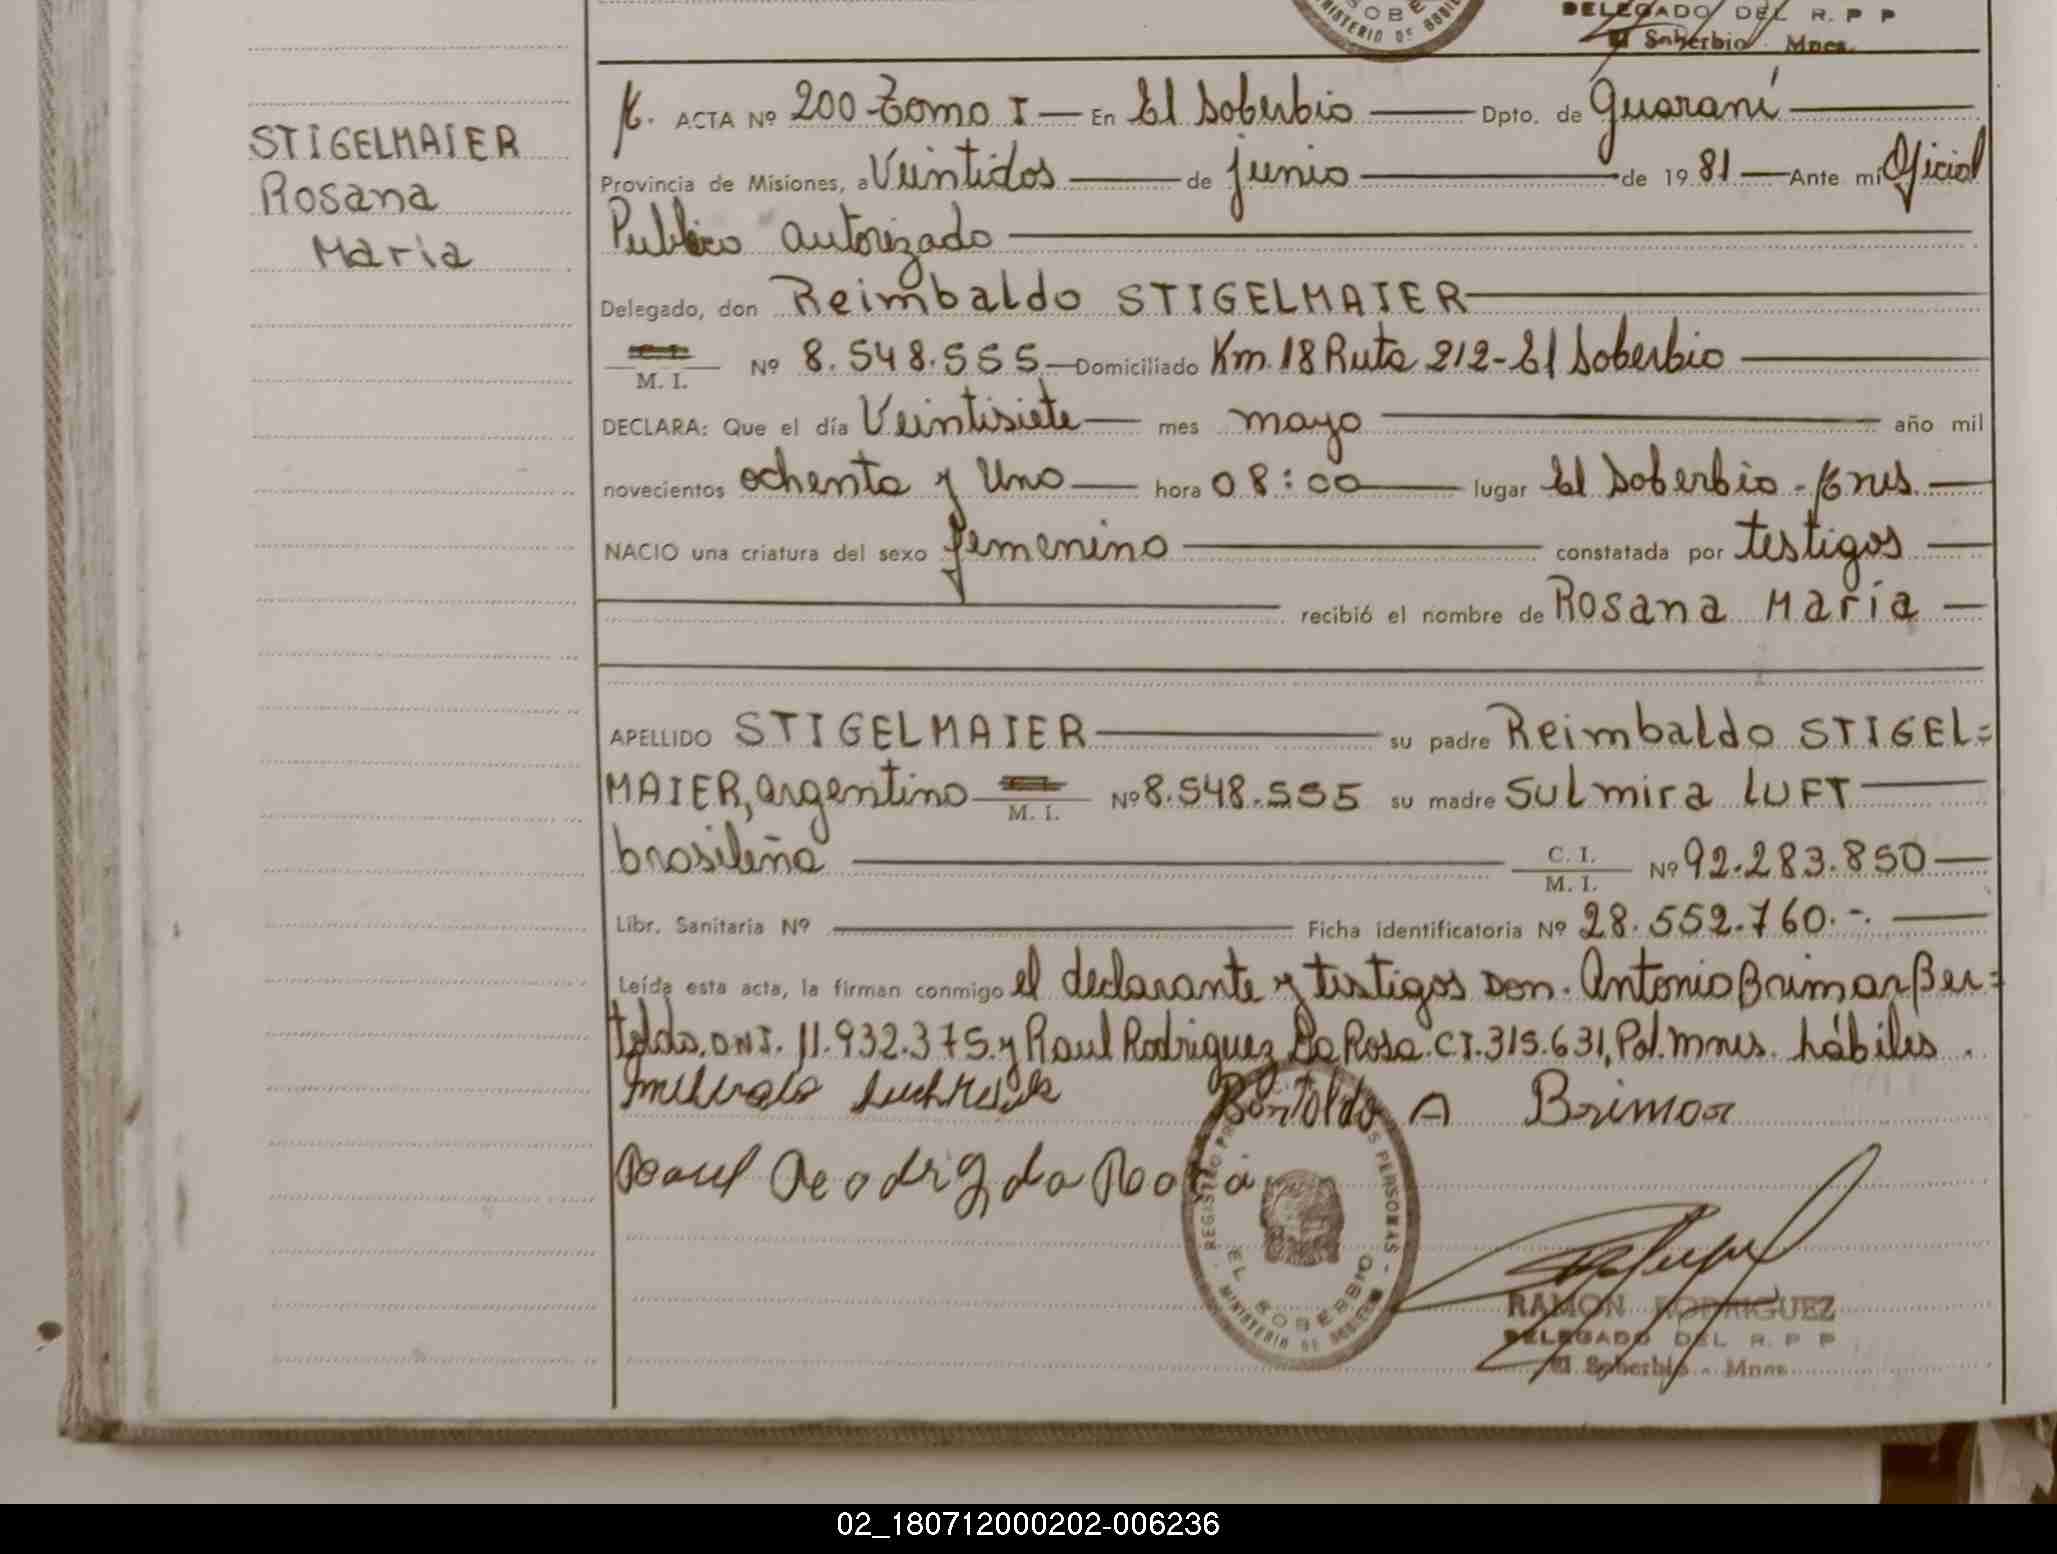 SOBE
MINISTERIO DE GOBIE
DELEGADO DEL R. P P
El Soberbio Mnes.
STIGELMAIER
Rosana
Maria
ACTA Nº 200 Tomo I — En El Soberbio — Dpto. de Guaraní —
Provincia de Misiones, a Veintidos — de junio — de 1981 — Ante mí Oficial
Publico autorizado —
Delegado, don Reimbaldo STIGELMAIER —
M. I. Nº 8.548.555 — Domiciliado Km. 18 Ruta 212 - El Soberbio —
DECLARA: Que el día Veintisiete — mes mayo — año mil
novecientos ochenta y Uno — hora 08:00 — lugar El Soberbio -
NACIO una criatura del sexo femenino — constatada por testigos —
— recibió el nombre de Rosana María —
APELLIDO STIGELMAIER — su padre Reimbaldo STIGEL=
MAIER, argentino — M. I. Nº 8.548.555 su madre Sulmira LUFT —
brasileña — C. I. M. I. Nº 92.283.850 —
Libr. Sanitaria Nº — Ficha identificatoria Nº 28.552.760.-. —
Leída esta acta, la firman conmigo el declarante y testigos Don. Antonio Brimar Ber=
toldo. DNI. 11.932.375. y Raul Rodriguez Da Rosa. CI. 315.631, Pol. Mnes. hábiles.
Bertoldo A Brimar
Raul Rodrig da Rosa
REGISTRO PR S PERSONAS
EL SOBERBIO
MINISTERIO DE GOBIERNO
RAMON RODRIGUEZ
DELEGADO DEL R. P P
El Soberbio - Mnes
02_180712000202-006236